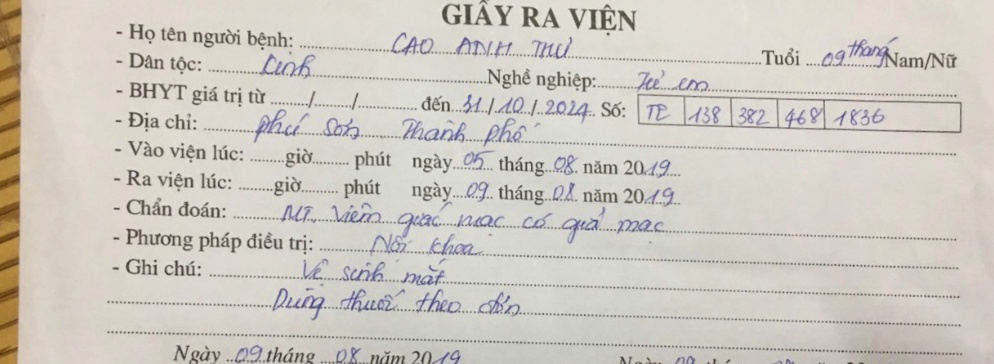 GIẤY RA VIỆN
- Họ tên người bệnh: CAO ANH THƯ Tuổi 09 tháng Nam/Nữ
- Dân tộc: Kinh Nghề nghiệp: Trẻ em
- BHYT giá trị từ ....../....../...... đến 31/10/2024 Số: TE 138 382 468 1836
- Địa chỉ: Phú Sơn Thành phố
- Vào viện lúc: ......giờ...... phút ngày 05 tháng 08 năm 2019
- Ra viện lúc: ......giờ...... phút ngày 09 tháng 08 năm 2019
- Chẩn đoán: MT, Viêm giác mạc có giả mạc
- Phương pháp điều trị: Nội khoa
- Ghi chú: Vệ sinh mắt
Dùng thuốc theo đơn
Ngày 09 tháng 08 năm 2019